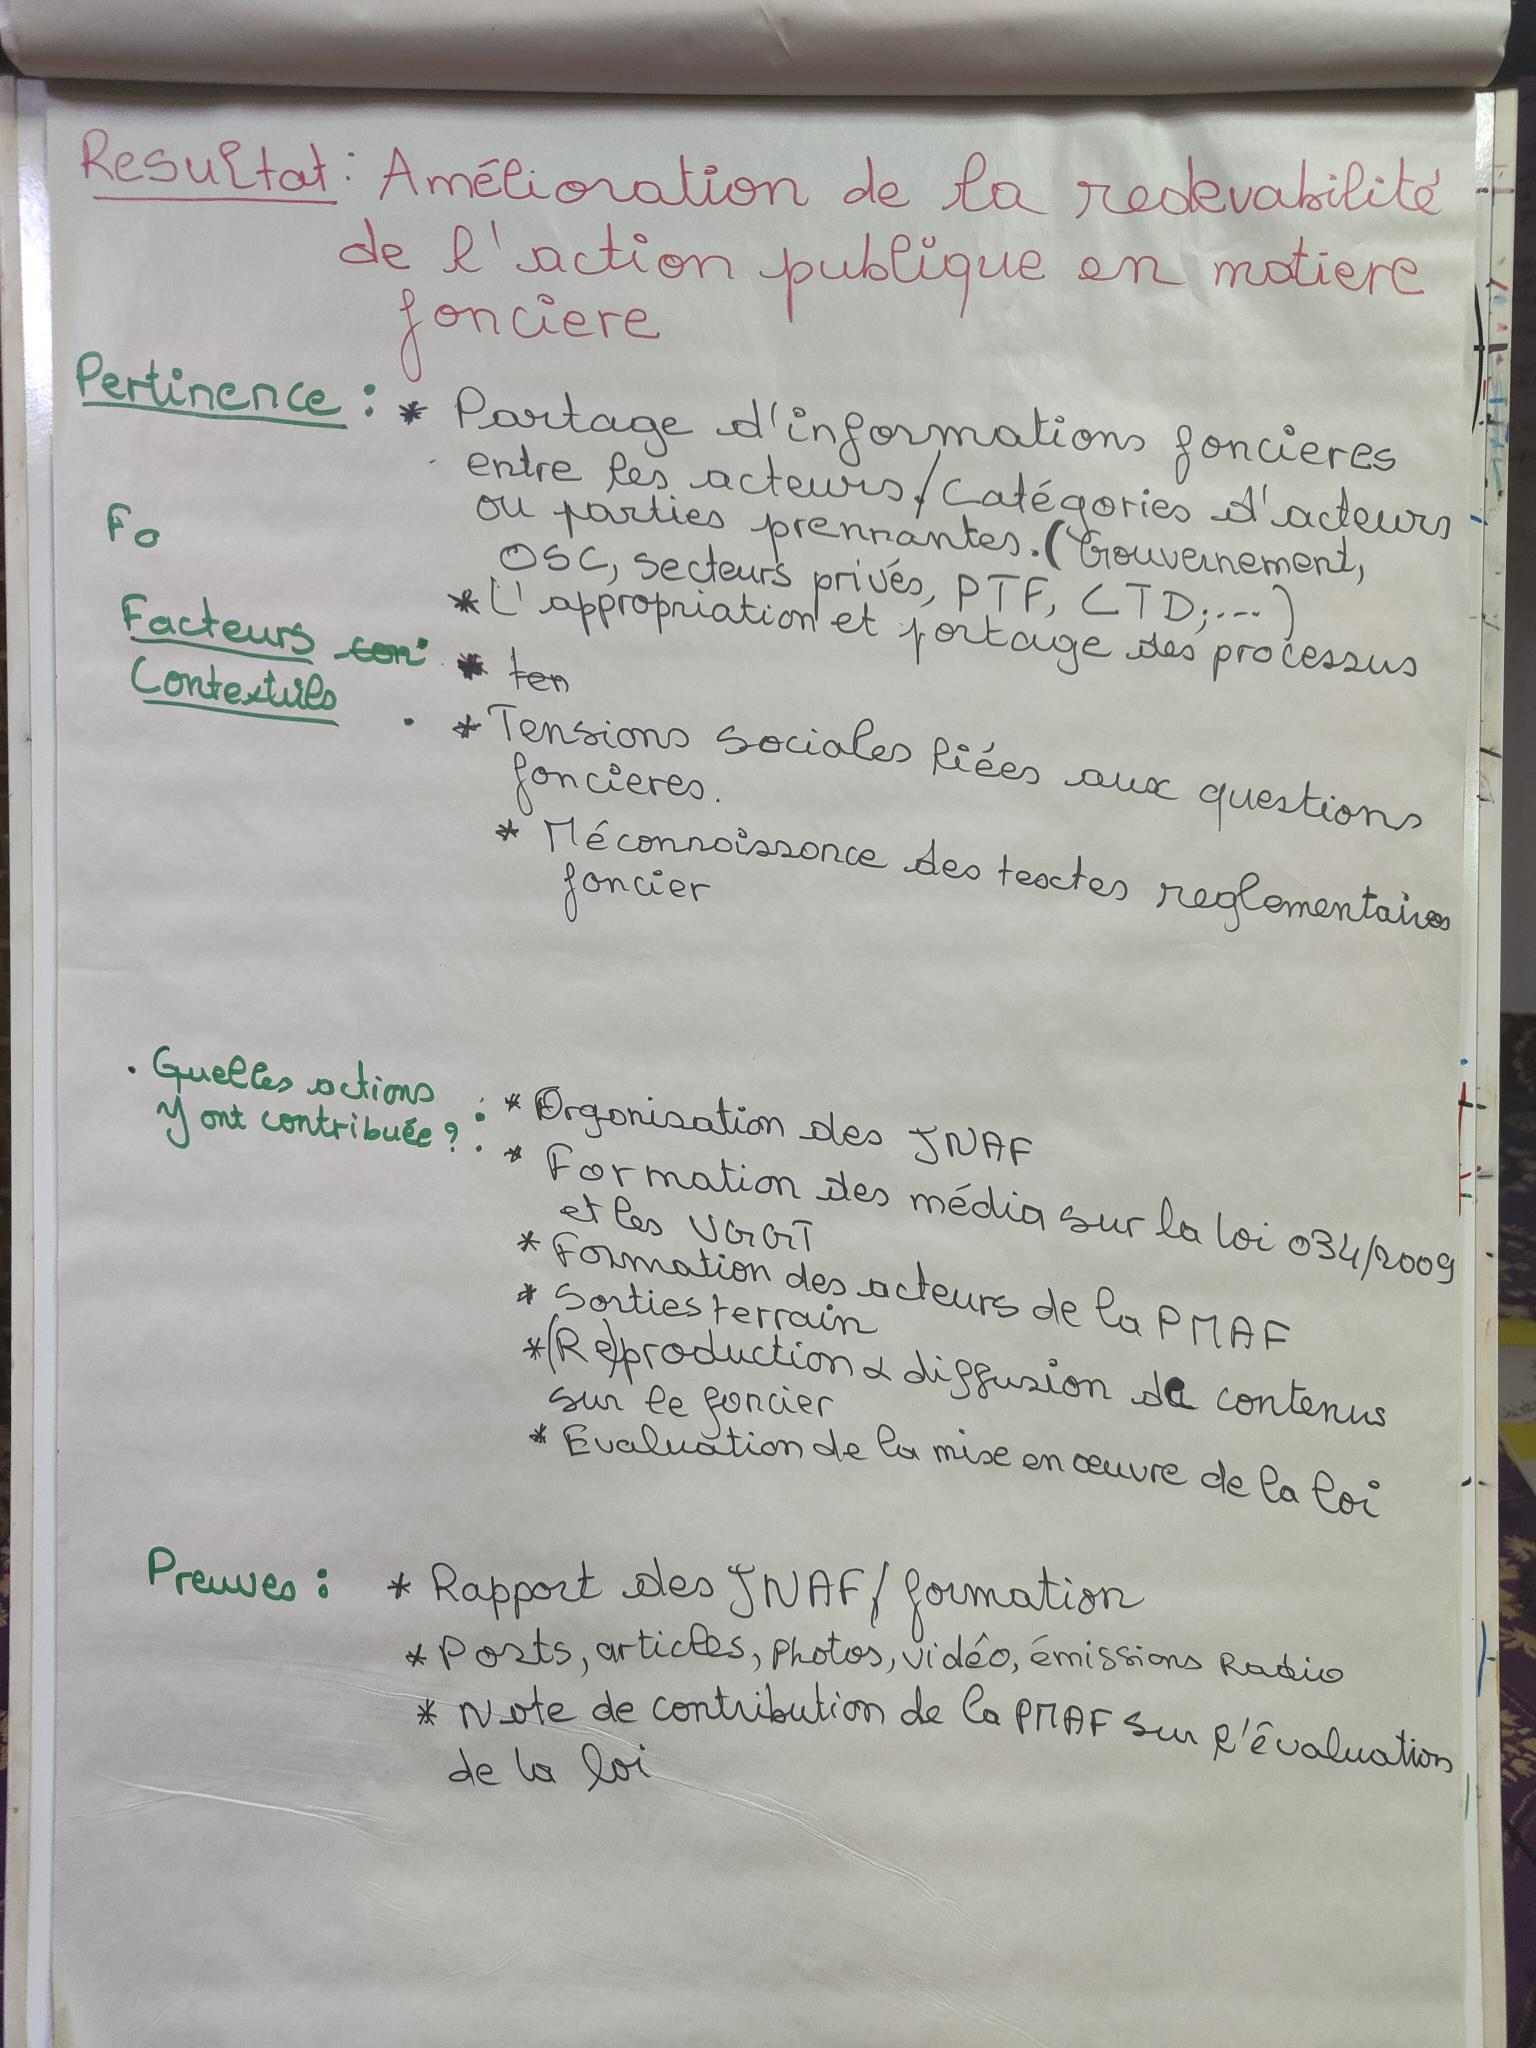 Resultat : Amélioration de la redevabilité
de l'action publique en matiere
fonciere
Pertinence : * Partage d'informations foncieres
entre les acteurs / Catégories d'acteurs
ou parties prennantes. (Gouvernement,
OSC, secteurs privés, PTF, CTD; ....)
* L'appropriation et portage des processus
Fo
Facteurs con :
Contextuels
* ten
* Tensions sociales liées aux questions
foncieres.
* Méconnaissance des textes reglementaires
foncier
. Quelles actions
y ont contribuée ? :
* Organisation des JNAF
* Formation des média sur la loi 034/2009
et les VGGT
* Formation des acteurs de la PMAF
* Sorties terrain
* (Re)production & diffusion de contenus
sur le foncier
* Evaluation de la mise en œuvre de la loi
Preuves : * Rapport des JNAF / formation
* Posts, articles, photos, vidéo, émissions Radio
* Note de contribution de la PMAF sur l'évaluation
de la loi